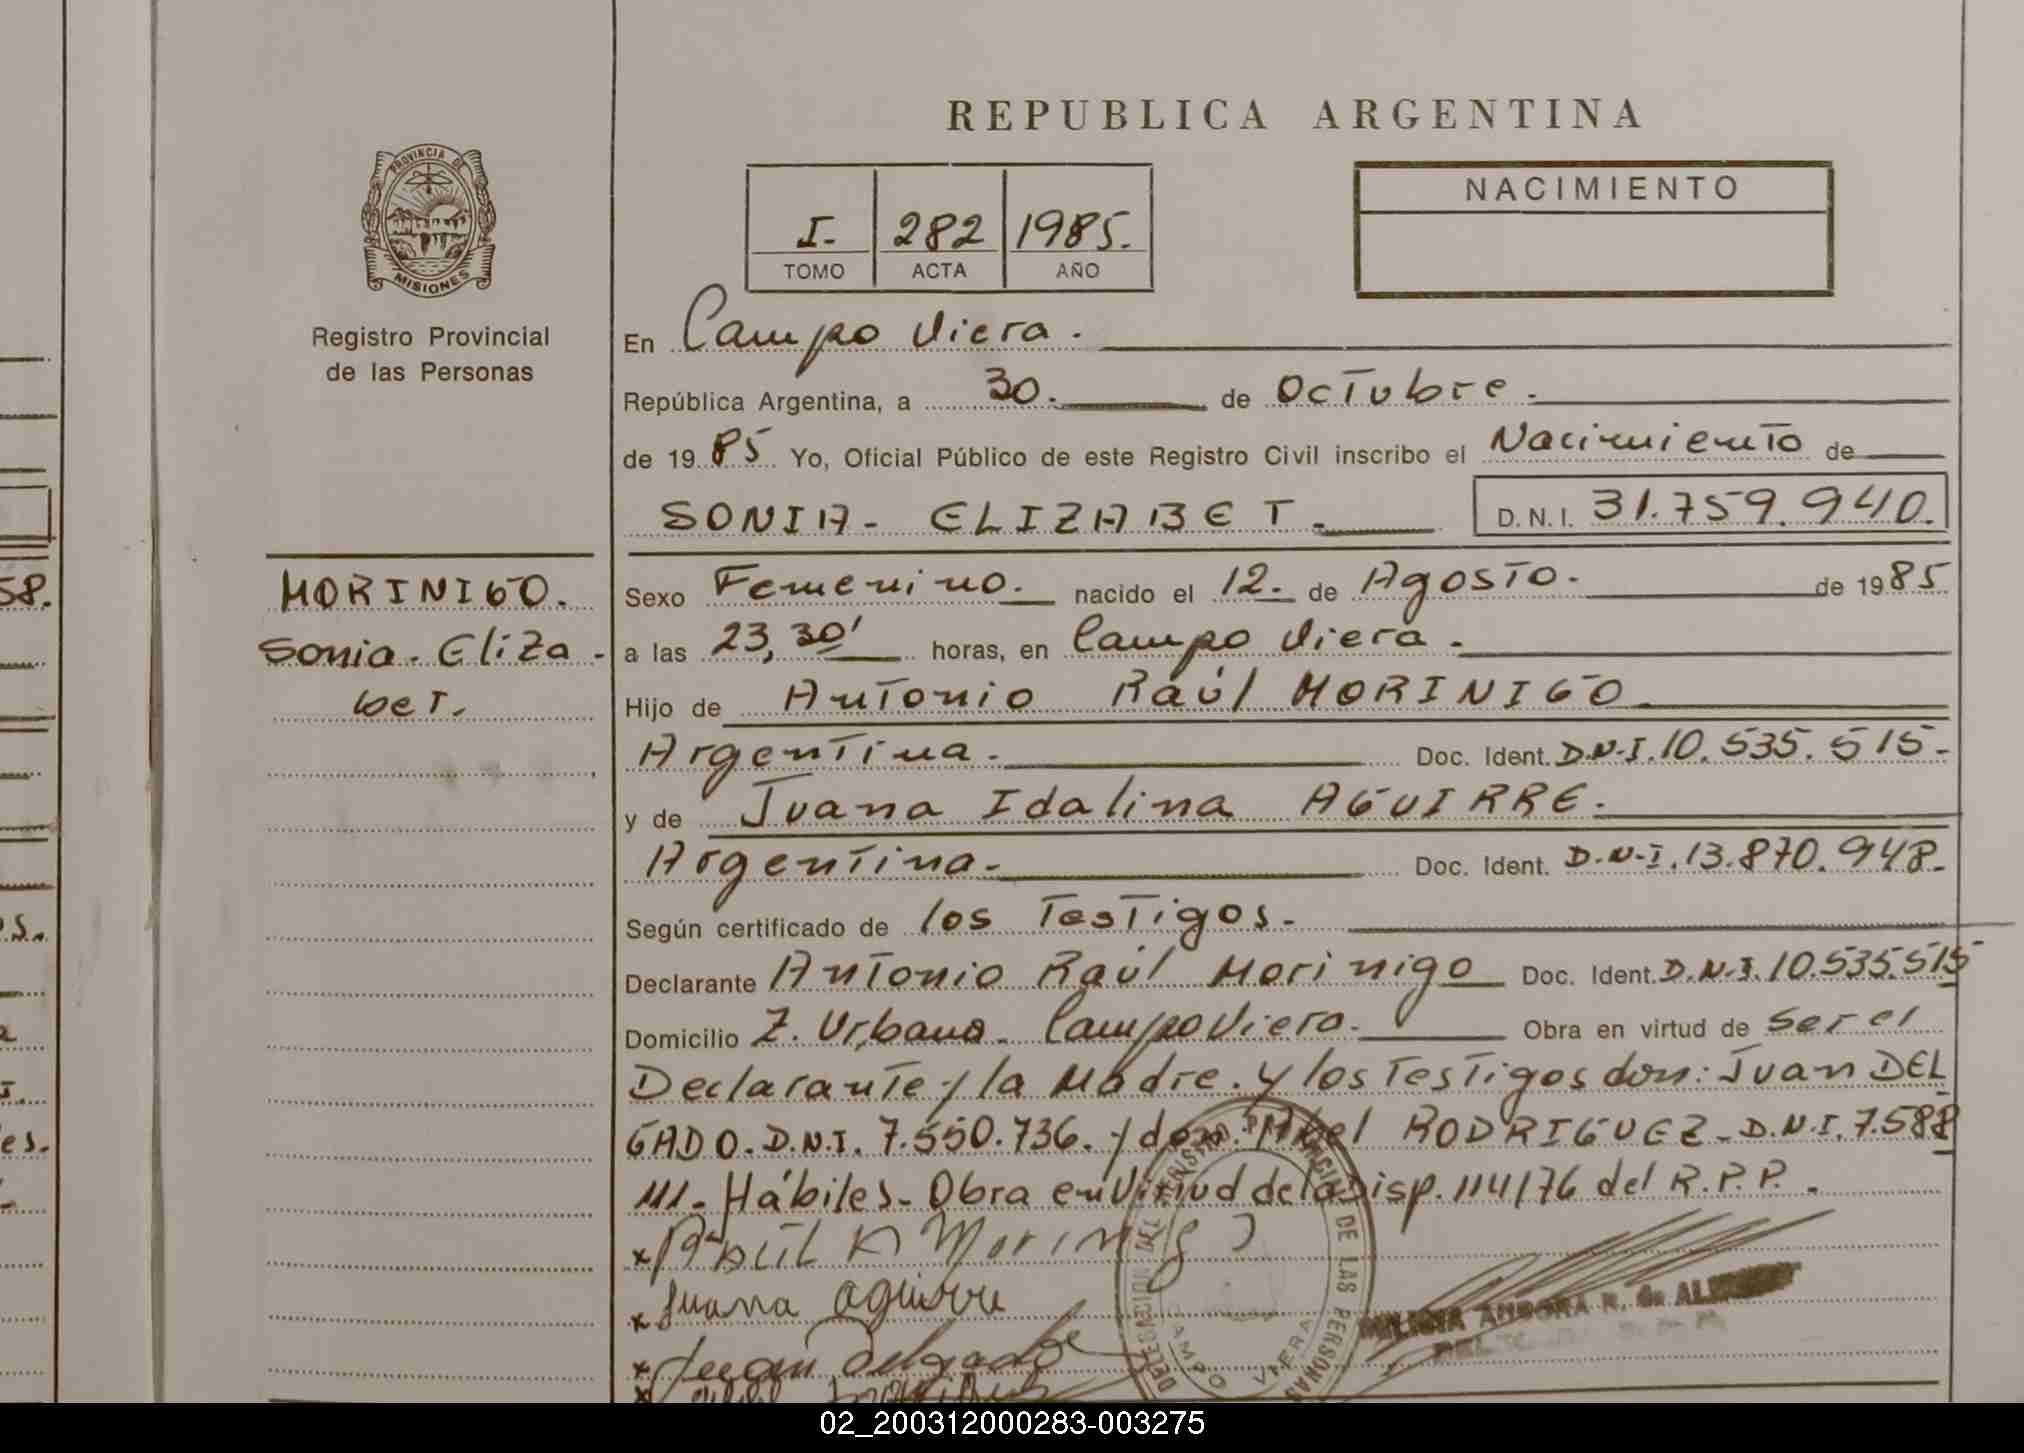 REPUBLICA ARGENTINA
PROVINCIA DE
MISIONES
Registro Provincial
de las Personas
I. 282 1985.
TOMO ACTA AÑO
NACIMIENTO
En Campo Viera.
República Argentina, a 30. de Octubre.
de 1985 Yo, Oficial Público de este Registro Civil inscribo el Nacimiento de
SONIA- ELIZABET. D.N.I. 31.759.940.
MORINIGO.
Sonia. Eliza-
bet.
Sexo Femenino. nacido el 12. de Agosto. de 1985
a las 23,30' horas, en Campo Viera.
Hijo de Antonio Raúl MORINIGO
Argentina. Doc. Ident. D.N.I. 10.535.515-
y de Juana Idalina AGUIRRE.
Argentina. Doc. Ident. D.N.I. 13.870.948-
Según certificado de los Testigos.
Declarante Antonio Raúl Morinigo Doc. Ident. D.N.I. 10.535.515
Domicilio Z. Urbana. Campo Viera. Obra en virtud de ser el
Declarante y la Madre. y los Testigos don: Juan DEL
GADO. D.N.I. 7.550.736. y don. Abel RODRIGUEZ- D.N.I. 7.588
111- Hábiles- Obra en Virtud de la Disp. 114/76 del R.P.P.
x Raúl A Morinigo
x Juana aguirre
x Juan Delgado
x
DELEGACION DEL REGISTRO PROVINCIAL DE LAS PERSONAS
CAMPO VIERA
58.
os.
a
es.
02_200312000283-003275